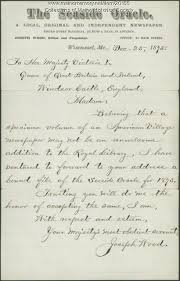 The Seaside Oracle,
A LOCAL, ORIGINAL AND INDEPENDENT NEWSPAPER.
JOSEPH WOOD, Editor and Proprietor.
Wiscasset, Me. Dec. 25, 1875.
To Her Majesty Victoria I.
Queen of Great Britain and Ireland,
Windsor Castle, England.
Madam:
Believing that a
specimen volume of an American Village
newspaper may not be an unwelcome
addition to the Royal Library, I have
ventured to forward to your address a
bound file of the Seaside Oracle for 1875.
Trusting you will do me the
honor of accepting the same, I am
With respect and esteem,
Your Majesty's most obedient servant,
Joseph Wood.